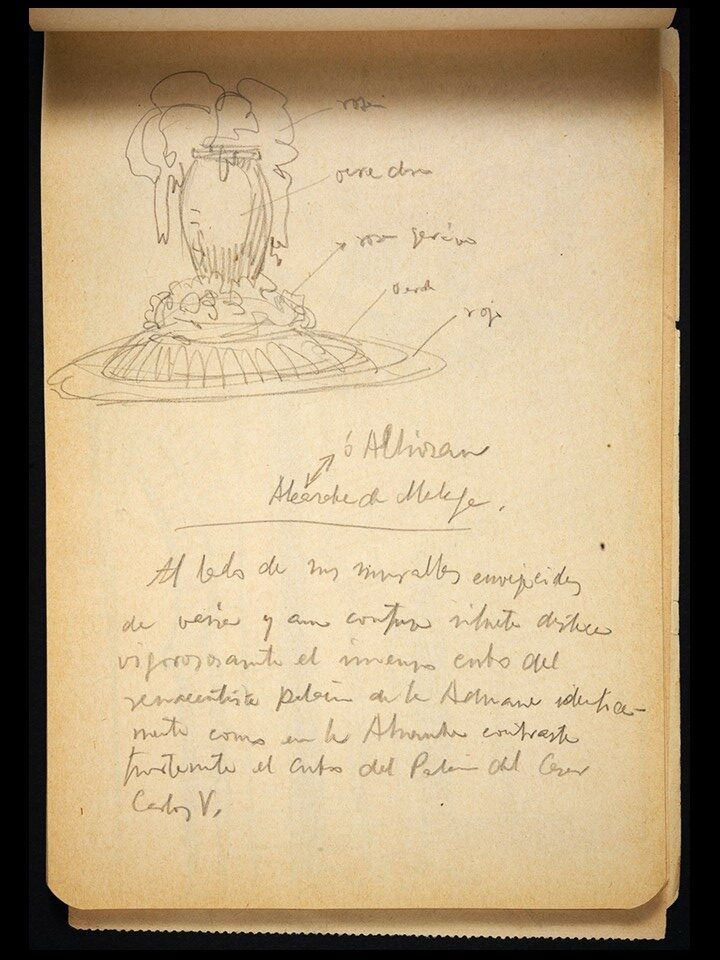 rosa
verde
rojo
ó Alhizan
Alcazaba de Malaga.
Al lado de sus murallas enrojecidas
de y confusa silueta destaca
vigorosamente el inmenso cubo del
renacentista palacio de la Aduana identica-
mente como en la Alhambra contrasta
fuertemente el cubo del Palacio del Cesar
Carlos V.